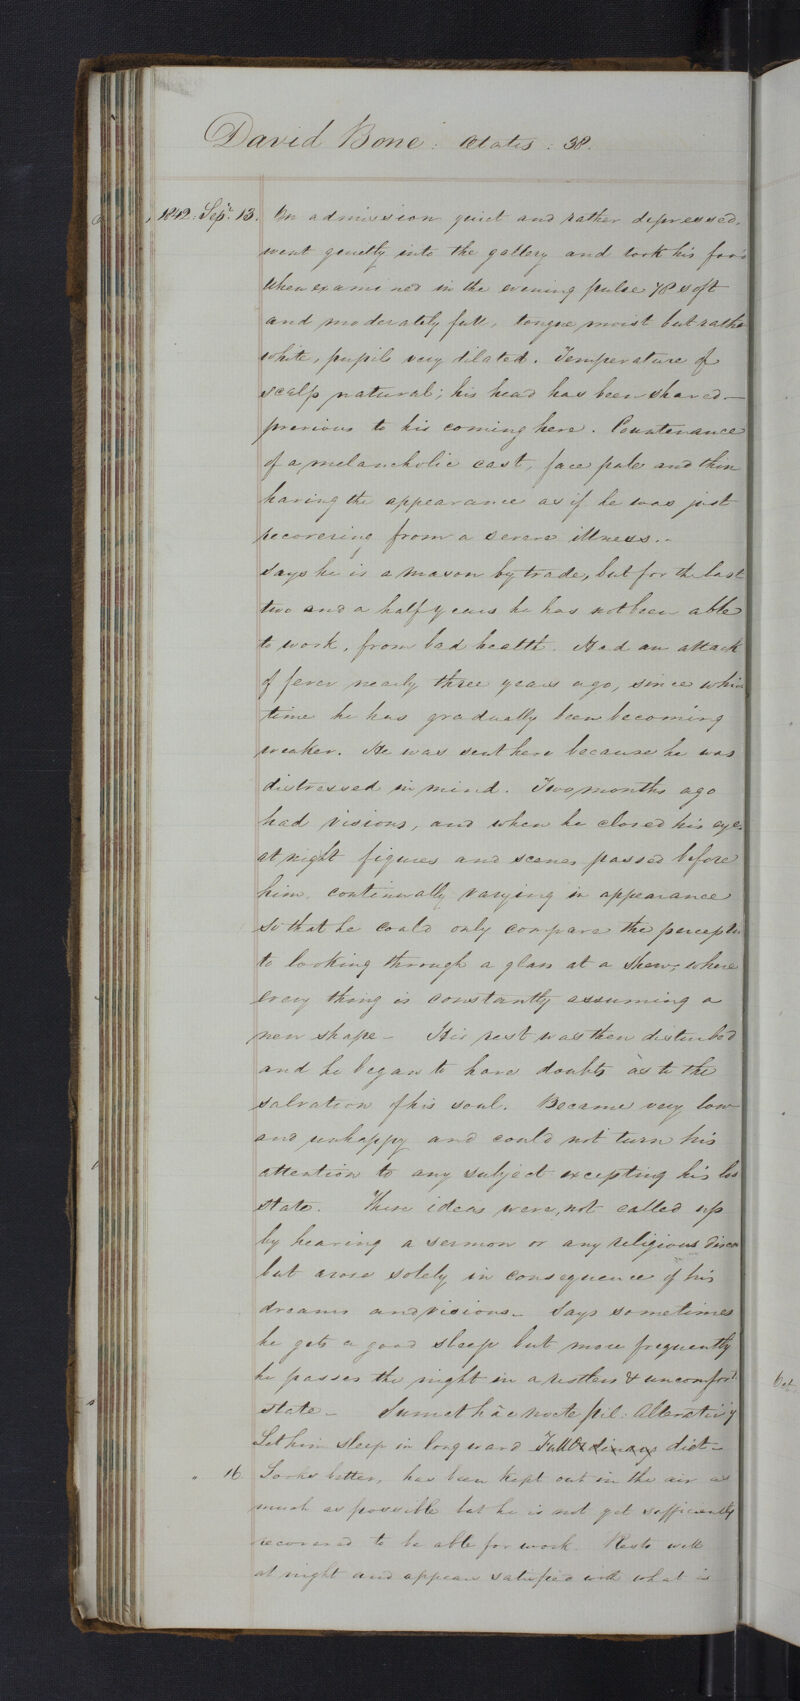 David Bone. Ætatis: 38.
1842. Sepr. 13. On admission quiet and rather depressed.
went quietly into the gallery and took his food
When examined in the evening pulse 78 soft
and moderately full, tongue moist but rathe
white, pupils very dilated. Temperature of
scalp natural; his head has been shaved—
previous to his coming here. Countenance
of a melancholic cast, face pale and thin
having the appearance as if he was just
recovering from a severe illness..
Says he is a mason by trade, but for the last
two and a half years he has not been able
to work, from bad health. Had an attack
of fever nearly three years ago, since which
time he has gradually been becoming
weaker. He was sent here because he was
distressed in mind. Two months ago
had visions, and when he closed his eyes
at night figures and scenes passed before
him, continually varying in appearance
so that he could only compare the perceptn
to looking through a glass at a shew, where
every thing is constantly assuming a
new shape— His rest was then disturbed
and he began to have doubts as to the
salvation of his soul. Became very low
and unhappy and could not turn his
attention to any subject excepting his los
state. These ideas were, not called up
by hearing a sermon or any religious disco
but arose solely in consequence of his
dreams and visions— Says sometimes
he gets a good sleep but more frequently
he passes the night in a restless & uncomfort
state— Sumat hâc nocte pil: Alterativ
Let him sleep in long ward Full Ordinary diet—
" 16 Looks better, has been kept out in the air as
much as possible but he is not yet sufficiently
recovered to be able for work. Rests well
at night and appears satisfied with what is
Oct